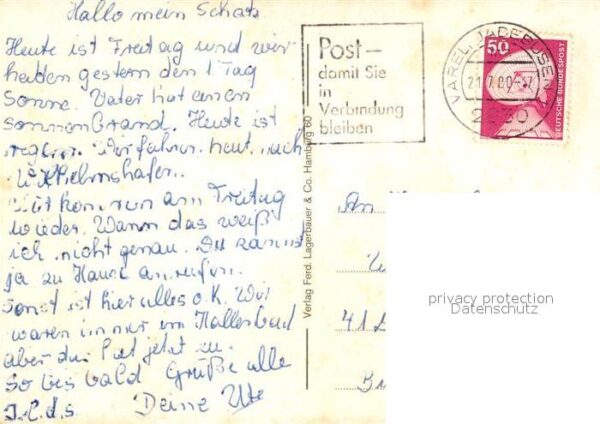 Hallo mein Schatz
Heute ist Freitag und wir
haben gestern den 1 Tag
Sonne. Vater hat einen
sonnenbrand. Heute ist
regen. Wir fahren heut nach
Wilhelmshafen.
Wir kommen am Freitag
wieder. Wann das weiß
ich nicht genau. Du kannst
ja zu Hause anrufen.
Sonst ist hier alles o.K. Wir
waren immer im Hallenbad
aber das hat jetzt zu.
So bis bald Grüße alle
I.L.d.s. Deine Ute
Post –
damit Sie
in
Verbindung
bleiben
VAREL, JADEBUSEN
21.7.80
2930
50
DEUTSCHE BUNDESPOST
Verlag Ferd. Lagerbauer & Co. Hamburg 60
An
41
privacy protection
Datenschutz